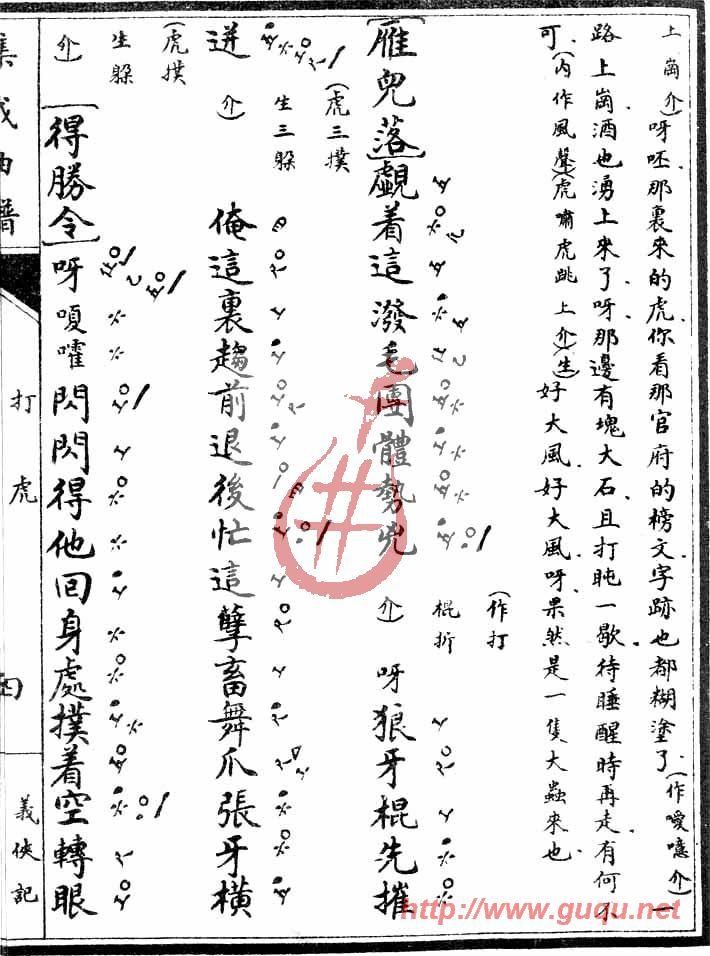 上崗介)呀呸那裏來的虎你看那官府的榜文字跡也都糊塗了(作噯噫介)一
路上崗酒也湧上來了呀那邊有塊大石且打盹一歇待睡醒時再走有何不
可(內作風聲)(虎嘯虎跳上介)(生)好大風好大風呀果然是一隻大蟲來也
[雁兒落]覷着這潑毛團體勢兇(作打棍折介)呀狼牙棍先摧
迸(虎三撲生三躲介)俺這裏趨前退後忙這孽畜舞爪張牙橫
(虎撲生躲介)[得勝令]呀嗄嚯閃閃得他回身處撲着空轉眼
集成曲譜
打虎
義俠記
http://www.guqu.net